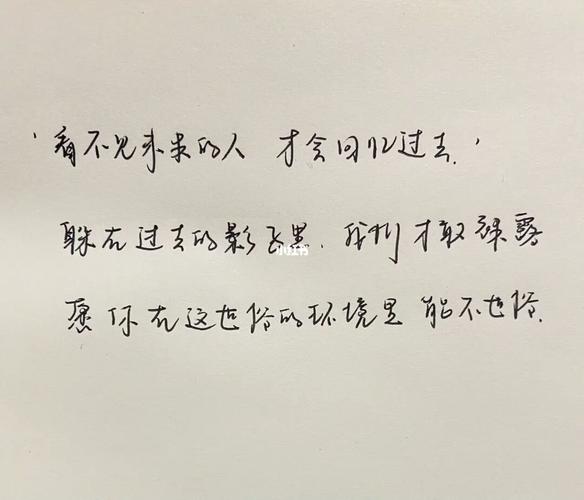 '看不见未来的人 才会回忆过去.'
躲在过去的影子里. 我们才敢裸露
愿你在这世俗的环境里 能不世俗.
小红书